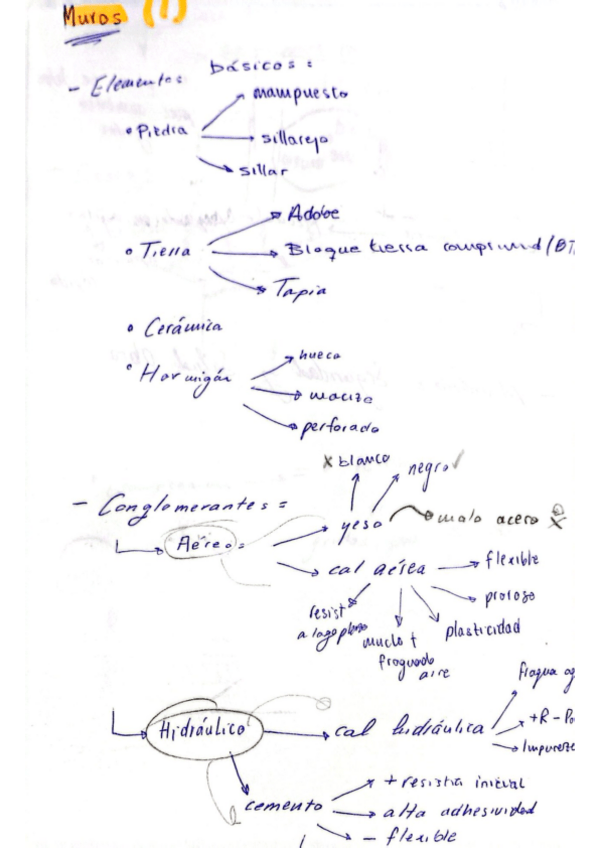 Muros (1)
- Elementos básicos:
• Piedra
mampuesto
sillarejo
sillar
• Tierra
Adobe
Bloque tierra comprimid/BT
Tapia
• Cerámica
• Hormigón
hueco
macizo
perforado
- Conglomerantes =
Aéreo:
yeso
x blanco
negro ✓
malo acero
cal aérea
flexible
poroso
plasticidad
mucho t
fraguado
aire
resist
a largo plazo
Hidráulico
cal hidráulica
fragua ag
+R - Po
Impureze
cemento
+ resistia inicial
alta adhesividad
- flexible